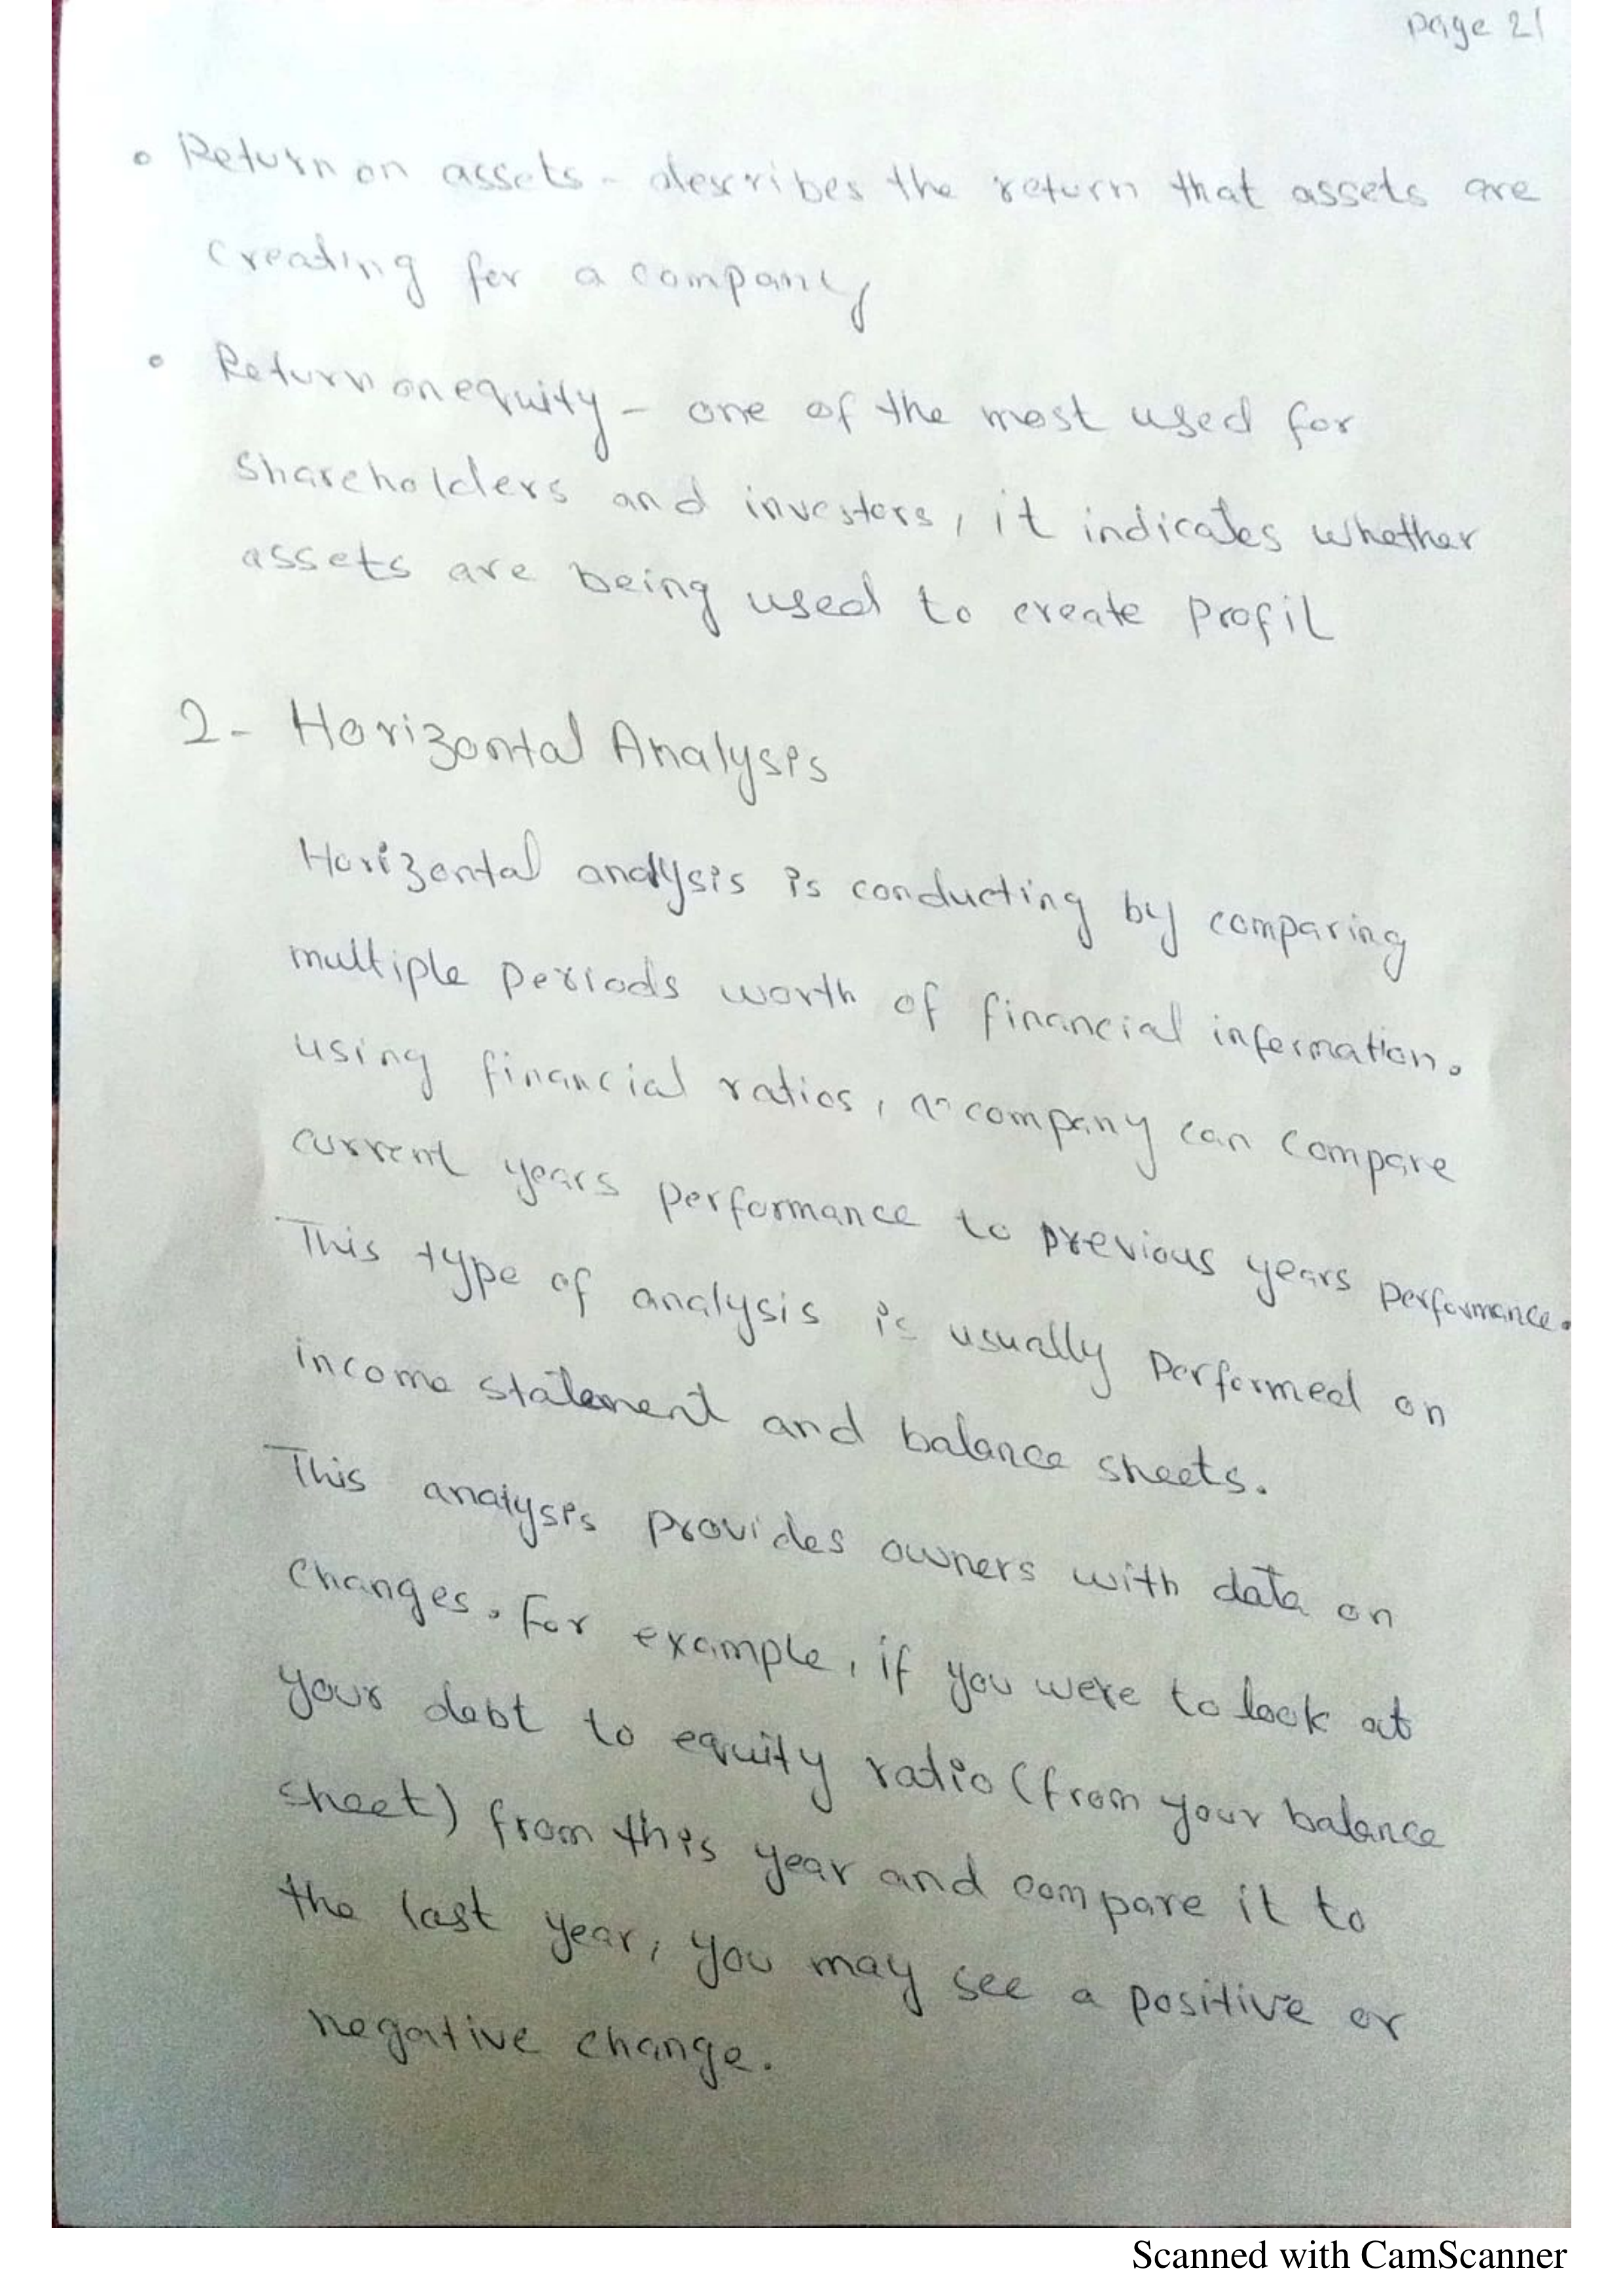 Page 21
• Return on assets - describes the return that assets are
creating for a company
• Return on equity - one of the most used for
shareholders and investors, it indicates whether
assets are being used to create profit
2- Horizontal Analysis
Horizontal analysis is conducting by comparing
multiple periods worth of financial information.
using financial ratios, a company can compare
current years performance to previous years performance.
This type of analysis is usually performed on
income statement and balance sheets.
This analysis provides owners with data on
changes. For example, if you were to look at
your debt to equity ratio (from your balance
sheet) from this year and compare it to
the last year, you may see a positive or
negative change.
Scanned with CamScanner